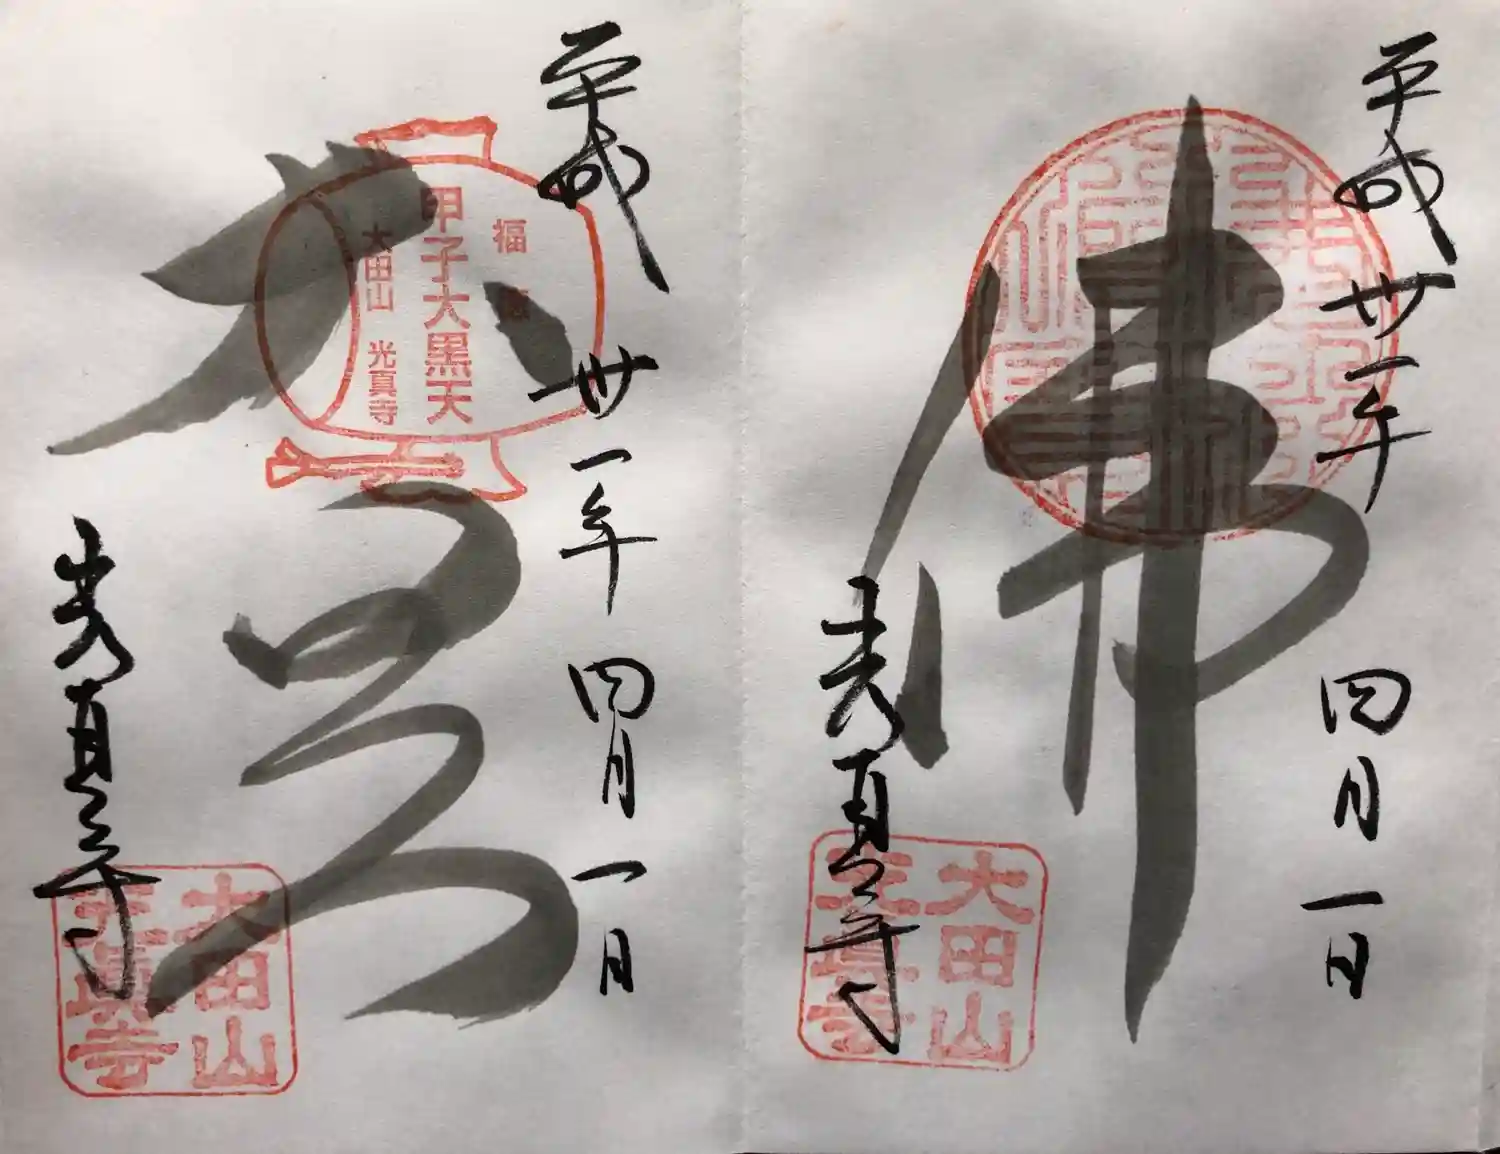 佛
平成卅一年四月一日
光真寺
大田山
光真寺
六黒
平成卅一年四月一日
福
甲子大黒天
大田山 光真寺
光真寺
大田山
光真寺